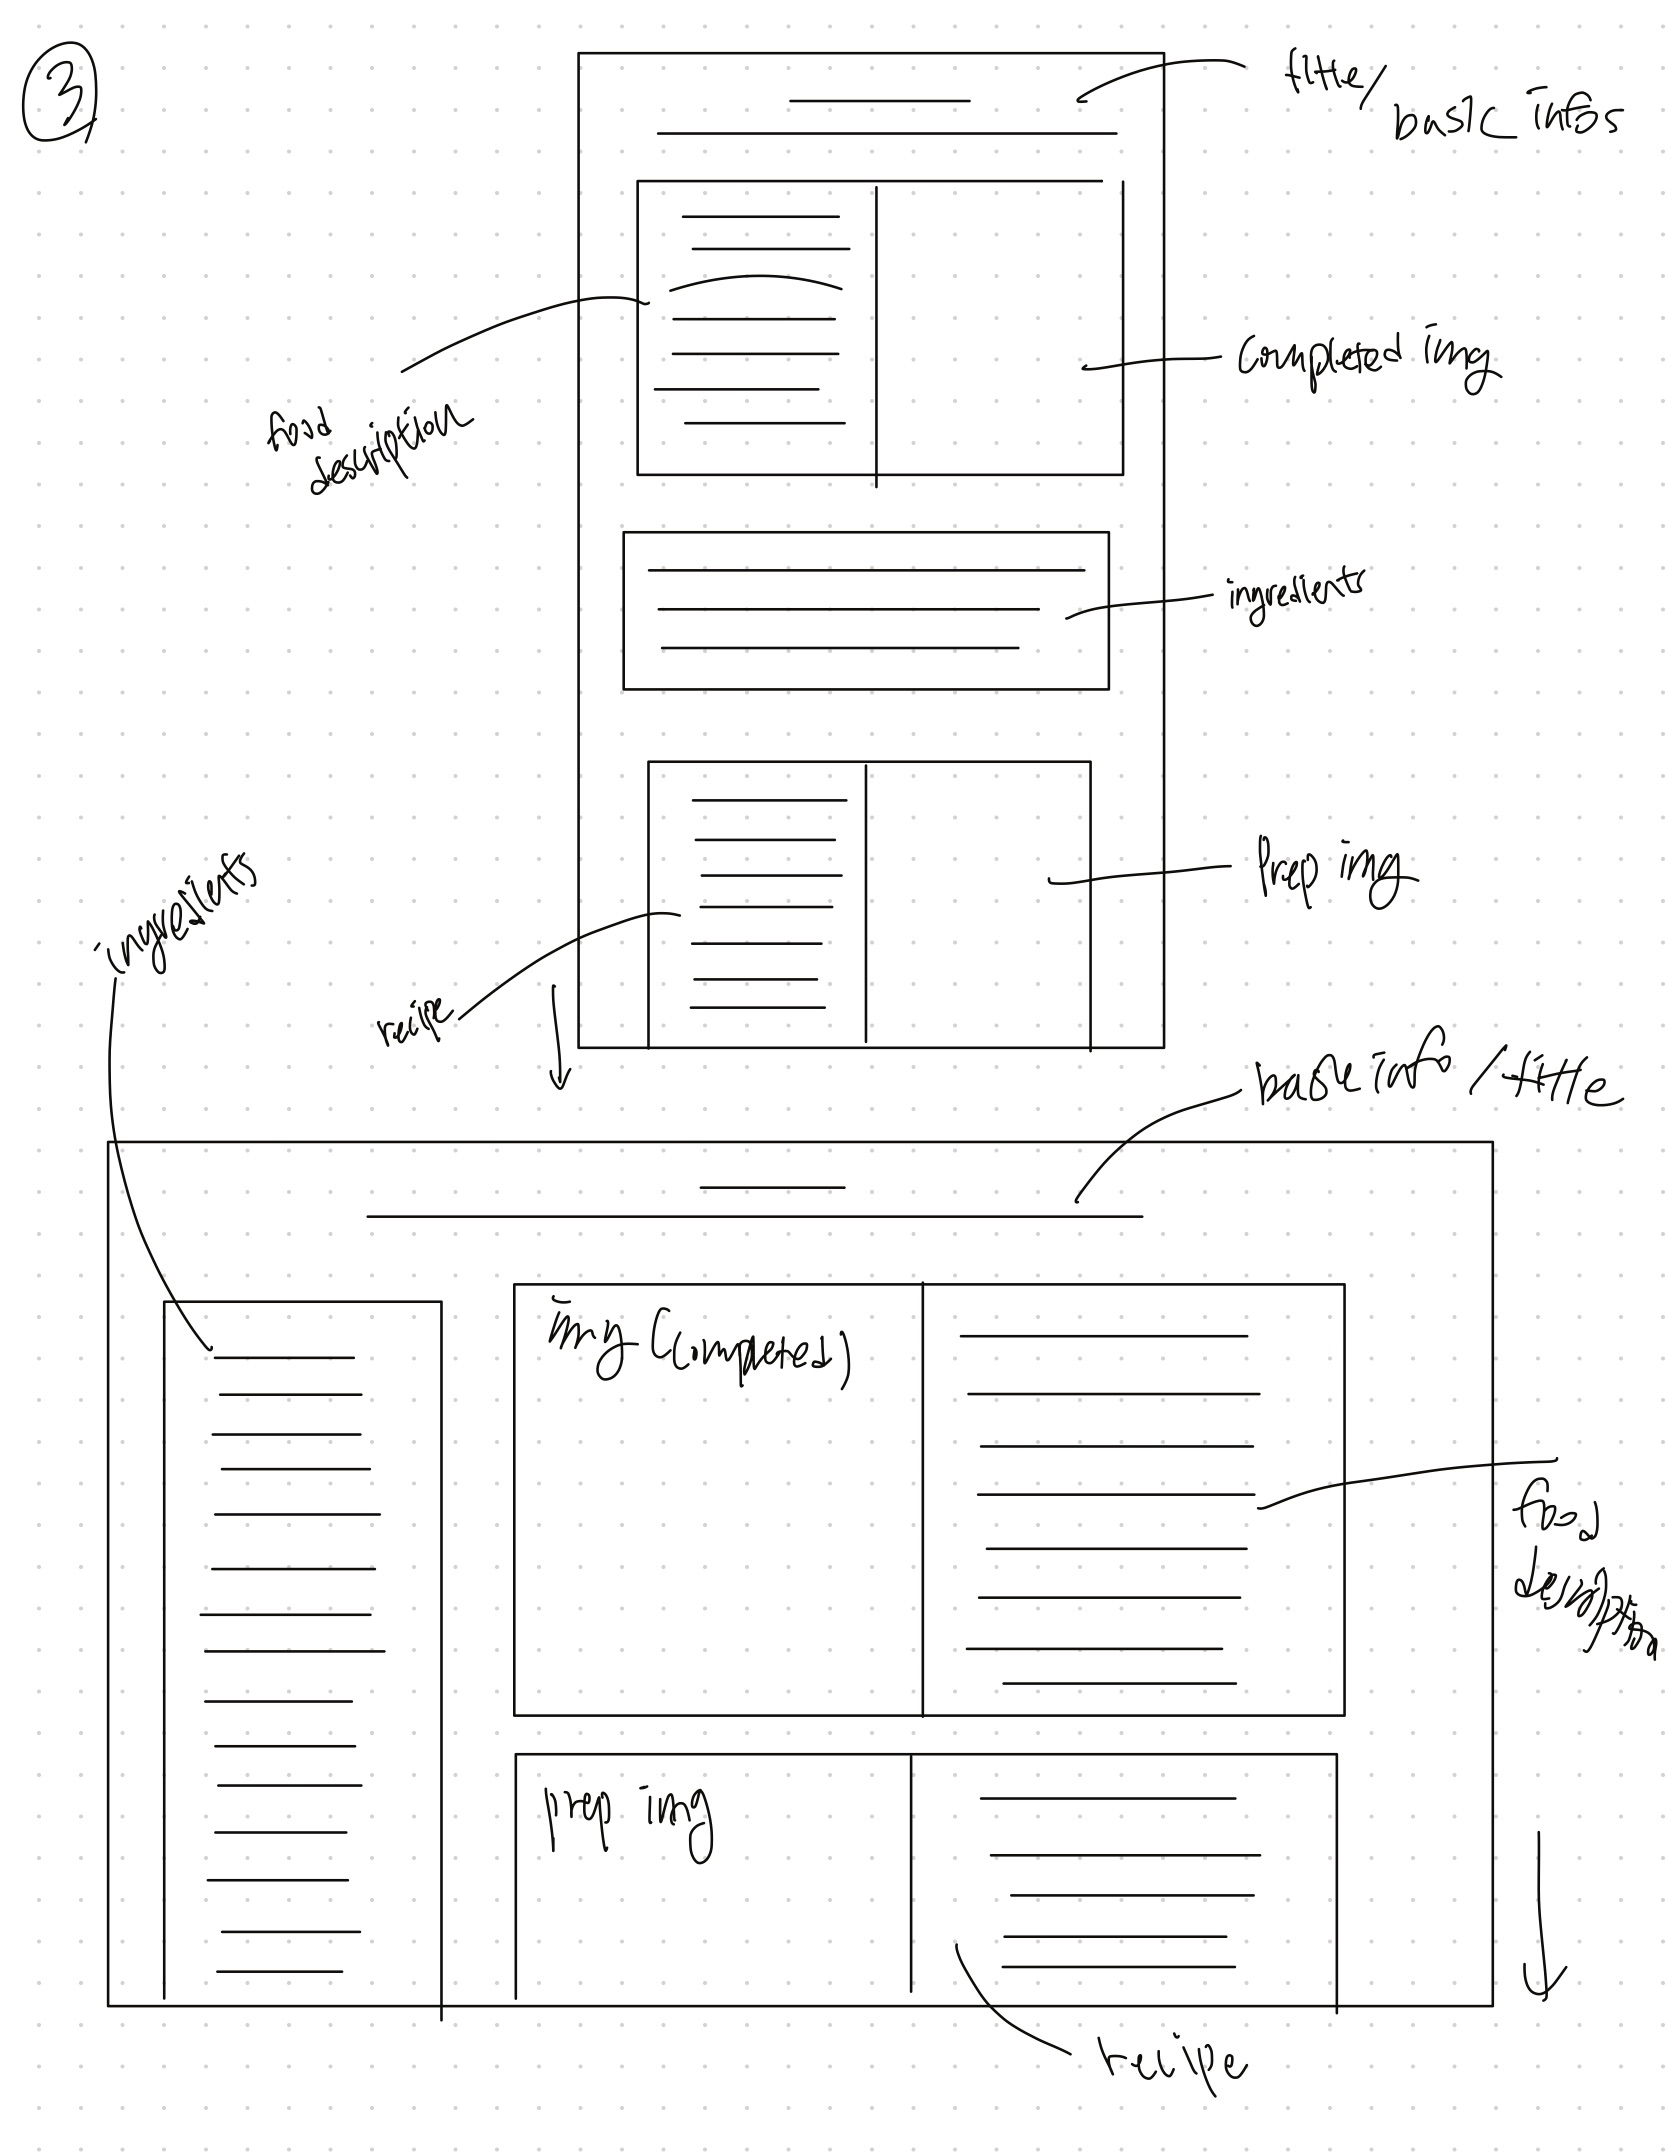 3
title/
basic infos
completed img
food
description
ingredients
Prep img
ingredients
recipe
basic info / title
img (completed)
food
description
prep img
recipe